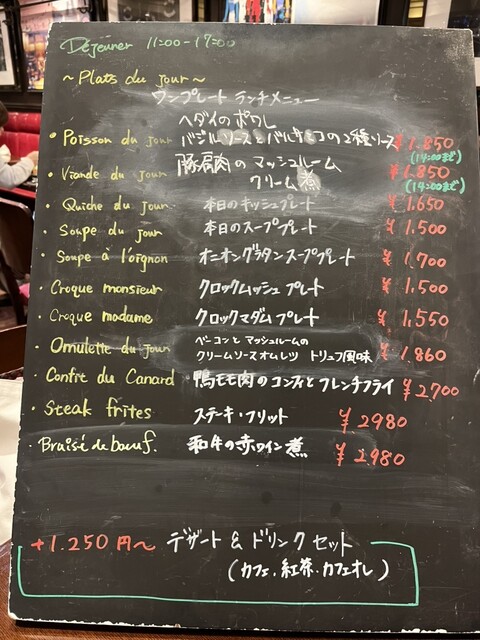 Déjeuner 11:00-17:00
~Plats du jour~
ワンプレート ランチメニュー
ヘダイのポワレ
・Poisson du jour バジルソースとバルサミコの2種ソース ¥1.850
(14:00まで)
・Viande du jour 豚肩肉のマッシュルーム ¥1.850
クリーム煮 (14:00まで)
・Quiche du jour 本日のキッシュプレート ¥1.650
・Soupe du jour 本日のスーププレート ¥1.500
・Soupe à l'oignon オニオングラタンスーププレート ¥1.700
・Croque monsieur クロックムッシュプレート ¥1.500
・Croque madame クロックマダムプレート ¥1.550
ベーコンとマッシュルームの
・Omulette du jour クリームソースオムレツ トリュフ風味 ¥1.860
・Confit du Canard 鴨モモ肉のコンフィとフレンチフライ ¥2,700
・Steak frites ステーキ・フリット ¥2980
・Braisé de bœuf. 和牛の赤ワイン煮 ¥2980
+1.250円～ デザート&ドリンクセット
(カフェ.紅茶.カフェオレ)